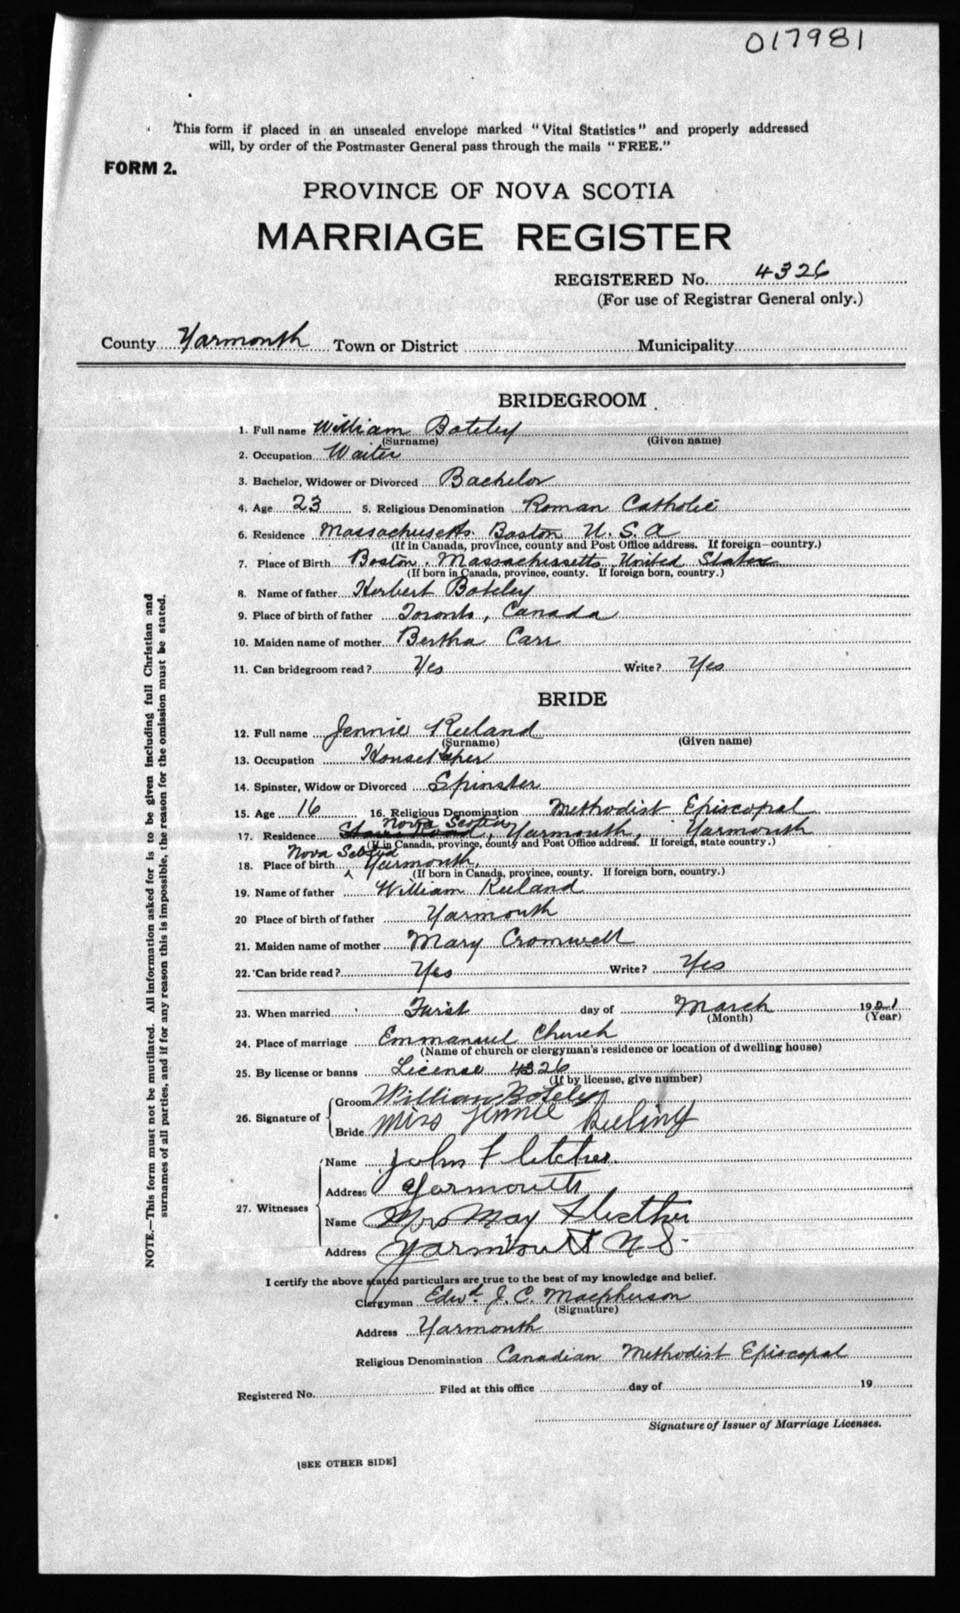 017981
This form if placed in an unsealed envelope marked "Vital Statistics" and properly addressed
will, by order of the Postmaster General pass through the mails "FREE."
FORM 2.
PROVINCE OF NOVA SCOTIA
MARRIAGE REGISTER
REGISTERED No. 4326
(For use of Registrar General only.)
County Yarmouth Town or District Municipality
BRIDEGROOM
1. Full name William Boteley
(Surname) (Given name)
2. Occupation Waiter
3. Bachelor, Widower or Divorced Bachelor
4. Age 23 5. Religious Denomination Roman Catholic
6. Residence Massachusetts Boston U.S.A
(If in Canada, province, county and Post Office address. If foreign—country.)
7. Place of Birth Boston, Massachusetts United States
(If born in Canada, province, county. If foreign born, country.)
8. Name of father Herbert Boteley
9. Place of birth of father Toronto, Canada
10. Maiden name of mother Bertha Carr
11. Can bridegroom read? Yes Write? Yes
BRIDE
12. Full name Jennie Reeland
(Surname) (Given name)
13. Occupation Housekeeper
14. Spinster, Widow or Divorced Spinster
15. Age 16 16. Religious Denomination Methodist Episcopal
17. Residence Nova Scotia, Yarmouth, Yarmouth
(If in Canada, province, county and Post Office address. If foreign, state country.)
18. Place of birth Nova Scotia Yarmouth,
(If born in Canada, province, county. If foreign born, country.)
19. Name of father William Reeland
20 Place of birth of father Yarmouth
21. Maiden name of mother Mary Cromwell
22. Can bride read? Yes Write? Yes
23. When married First day of March 1921
(Month) (Year)
24. Place of marriage Emmanuel Church
(Name of church or clergyman's residence or location of dwelling house)
25. By license or banns License 4326
(If by license, give number)
26. Signature of Groom William Boteley
Bride Miss Jennie Reeling
27. Witnesses
Name John Fletcher
Address Yarmouth
Name Mrs May Fletcher
Address Yarmouth N S.
I certify the above stated particulars are true to the best of my knowledge and belief.
Clergyman Edwd. J. C. Macpherson
(Signature)
Address Yarmouth
Religious Denomination Canadian Methodist Episcopal
Registered No. Filed at this office day of 19
Signature of Issuer of Marriage Licenses.
[SEE OTHER SIDE]
NOTE.—This form must not be mutilated. All information asked for is to be given including full Christian and
surnames of all parties, and if for any reason this is impossible, the reason for the omission must be stated.